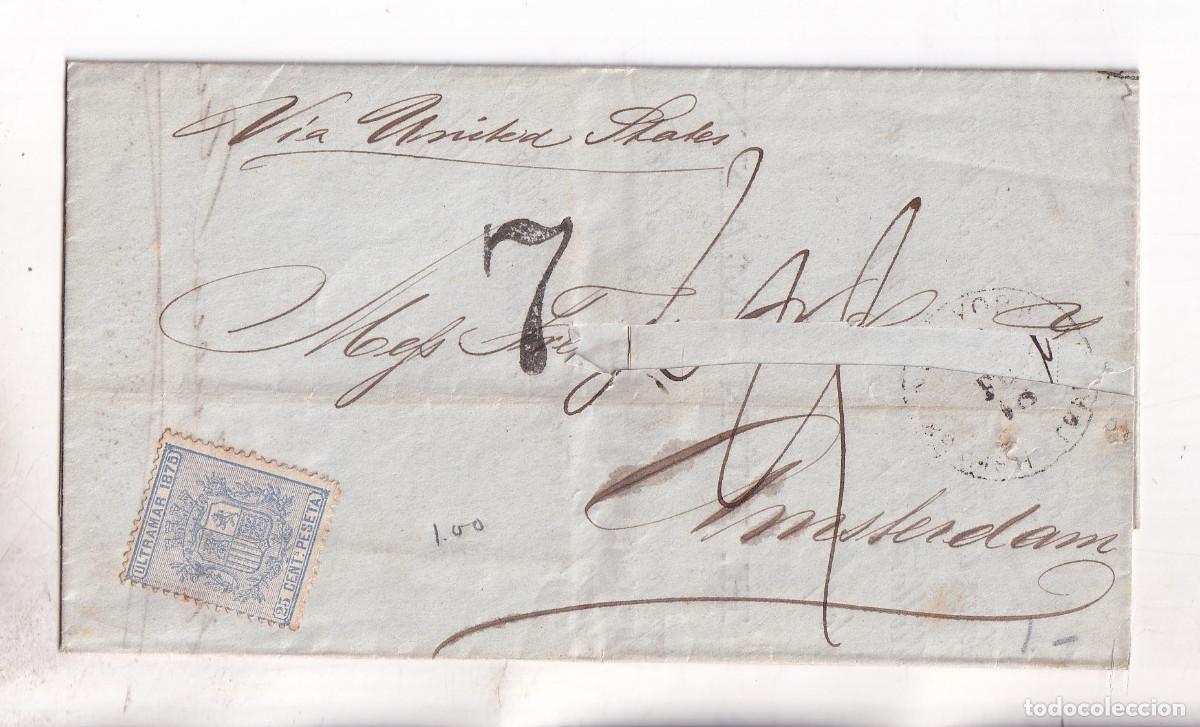 Via United States
7
Mess
Amsterdam
ULTRAMAR 1875
25 CENTS PESETA
1.00
1.-
todocoleccion